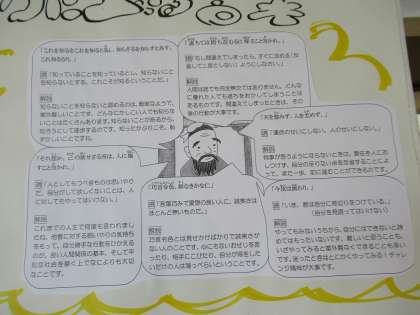 「これを知るをこれを知ると為し、知らざるを知らずと為す。
これ知るなり。」
訳「知っていることを知っているとし、知らないことを
知らないとする。これこそが知るということだ。」
解説
知らないことを知らないと認めるのは、簡単なようで、
案外難しいことです。どんなにかしこい人でも知らな
いことはたくさんあります。知らないことがあるから、
知ろうとして進歩するのです。知ったかぶりこそ、恥
ずかしいことですね。
「過ちては則ち改むるに憚ること勿かれ。」
訳「もし間違えてしまったら、すぐに改める(反
省して二度としない)ようにしなさい。」
解説
人間は誰でも完全無欠ではありません。どんな
に優れた人でも過ちをおかしてしまうことは
あるものです。間違えてしまったときは、その
後の行動が大事です。
「天を怨みず、人を尤めず。」
訳「運命のせいにしない、人のせいにしない。」
解説
物事が思うようにならないときは、責任を人にの
しつけず、自分の足りない点を反省することによ
って、また一歩、前に進むことができるのです。
「それ恕か。己の欲せざる所は、人に施
すこと勿かれ。」
訳「人としてもつべきものは思いやり
だ。自分がして欲しくないことは、人
に対してもやってはいけない。」
解説
これまでの人生で何度も言われました
ね。他者に対する思いやりの気持ち
をもって、自分勝手な行動をひかえる
のが、良い人間関係の基本、そして平
和な社会を築く上でなによりも大切
なことです。
「巧言令色、鮮なきかな仁」
訳「言葉巧みで愛想の良い人に、誠実さは
ほとんど無いものだ。」
解説
巧言令色とは見せかけばかりで誠実さが
ない人のことです。心にもないおせじを言
ったり、相手にこびたり、自分が得をした
いだけの人は薄っぺらいということです。
「今女は画れり。」
訳「いま、君は自分に見切りをつけている。」
(自分を見限ってはいけない)
解説
やってもみないうちから、自分にはできないと諦
めてはもったいないです。難しいと思うことも、
いざやってみると案外難なくできることも多い
です。迷ったときはとにかくやってみる！チャレ
ンジ精神が大事です。